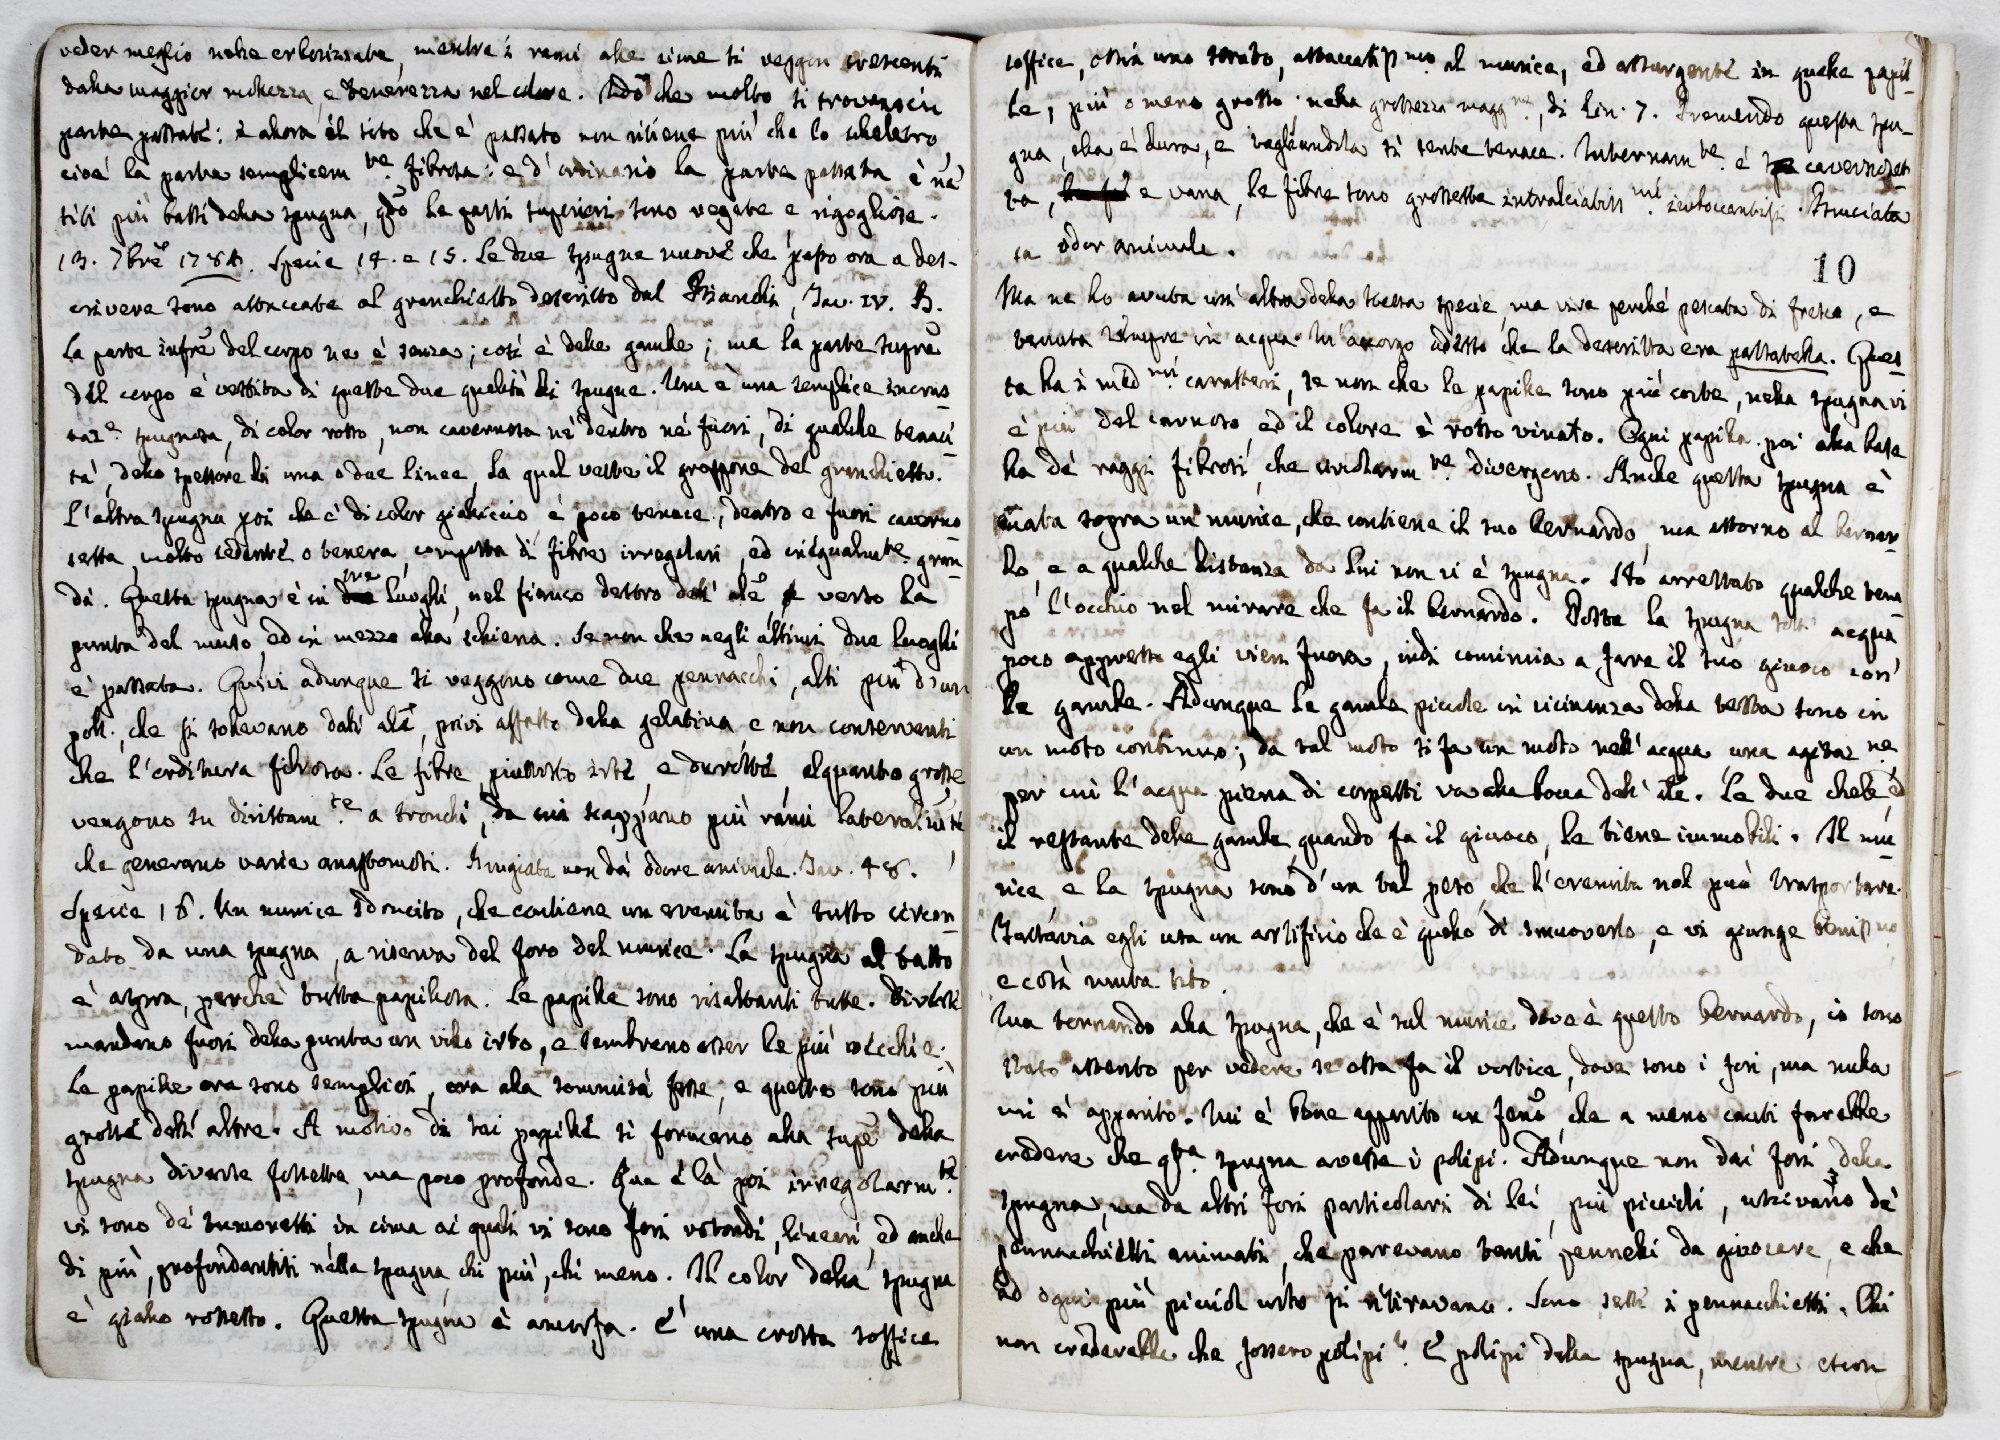 veder meglio nelle erborizzate, mentre i rami alle cime si veggon crescenti
dalla maggior mollezza, e tenerezza nel colore. Vedo che molto si trovano in
parte passate: e allora il sito che è passato non ritiene più che lo scheletro
cioè la parte semplicem.te fibrosa: e d'ordinario la parte passata è ne'
siti più bassi della spugna, qdo le parti superiori sono vegete e rigogliose.
13. 7bre 1784. Specie 14. e 15. Le due spugne nuove che passo ora a des-
crivere sono attaccate al granchietto descritto dal Bianchi, Tav. IV. B.
La parte infre del corpo ne è senza; così è delle gambe; ma la parte supre
del corpo è vestita di queste due qualità di spugne. Una è una semplice incros-
taze. spugnosa, di color rosso, non cavernosa nè dentro nè fuori, di qualche tenaci-
tà, dello spessore di una o due linee, la qual veste il groppone del granchietto.
L'altra spugna poi che è di color gialliccio è poco tenace, dentro e fuori caverno-
setta, molto cedente o tenera, composta di fibre irregolari, ed inegualmte. gran-
di. Questa spugna è in tre luoghi, nel fianco destro dell' ale, verso la
punta del muso, ed in mezzo alla schiena. Se non che negli ultimi due luoghi
è passata. Quivi adunque si veggono come due pennacchi, alti più d'un
poll., che si tolevano dall' ale, privi affatto della gelatina e non conserventi
che l'orditura fibrosa. Le fibre piuttosto irte, e durette, alquanto grosse,
vengono su dirittam.te a tronchi, da cui scappano più rami lateralmte
che generano varie anastomosi. Brugiata non dà odore animale. Tav. 48.
Specie 16. Un murice sdrucito, che contiene un eremita è tutto circon-
dato da una spugna, a riserva del foro del murice. La spugna al tatto
è aspra, perchè tutta papillosa. Le papille sono risaltanti tutte. Diverse
mandano fuori della punta un villo irto, e sembrano esser le più vecchie.
Le papille ora sono semplici, ora alla sommità fesse, e queste sono più
grosse dell' altre. A motivo di tai papille si formano alla supe della
spugna diverse fossette, ma poco profonde. Qua e là poi irregolarm.te
vi sono de' tumoretti in cima ai quali vi sono fori rotondi, lineari, ed anche
di più, profondantisi nella spugna, chi più, chi meno. Il color della spugna
è giallo rossetto. Questa spugna è amorfa. E' una crosta soffice
soffice, ossia uno strato, attaccatissmo al murice, ed assurgente in quelle papil-
le, più o meno grosso. nella grossezza maggre., di lin. 7. Premendo questa spu-
gna, ella è dura, e tagliandola si sente tenace. Internam.te è cavernoset-
ta, e vana, le fibre sono grossette intralciatiss.mi intoccantisi. Bruciata
sa odor animale.
10
Ma ne ho avuta un' altra della stessa specie, ma viva perchè pescata di fresco, e
tenuta sempre in acqua. M'accorgo adesso che la descritta era passatella. Ques-
ta ha i med.mi caratteri, se non che le papille sono più corte, nella spugna vi
è più del carnoso, ed il colore è rosso vinato. Ogni papilla poi alla base
ha de' raggi fibrosi, che circolarm.te divergono. Anche questa spugna è
nata sopra un murice, che contiene il suo bernardo, ma attorno al bernar-
do, e a qualche distanza da lui non vi è spugna. Ho arrestato qualche tem-
po l'occhio nel mirare che fa il bernardo. Posta la spugna sott' acqua
poco appresso egli vien fuora, indi comincia a fare il suo giuoco con
le gambe. Adunque le gambe piccole in vicinanza della testa sono in
un moto continuo; da tal moto si fa un moto nell' acqua una agitaz.ne
per cui l'acqua piena di corpetti va alla bocca dell' ale. Le due chele, ed
il restante delle gambe, quando fa il giuoco, le tiene immobili. Il mu-
rice, e la spugna sono d'un tal peso, che l'eremita nol può trasportare.
Tuttavia egli usa un artifizio che è quello di smuoverlo, e vi giunge benissmo,
e così muta sito.
Ma tornando alla spugna, che è sul murice dove è questo bernardo, io sono
stato attento per vedere se essa fa il vortice, dove sono i fori, ma nulla
mi è apparito. Mi è bene apparito un feno, che a meno cauti farebbe
credere che qsta. spugna avesse i polipi. Adunque non dai fori della
spugna, ma da altri fori particolari di lei, più piccoli, uscivano de'
pennacchietti animati, che parevano tanti pennelli da giuocare, e che
ad ogni più picciol urto si ritiravano. Sono sette i pennacchietti. Chi
non crederebbe che fossero polipi? E polipi della spugna, mentre escon